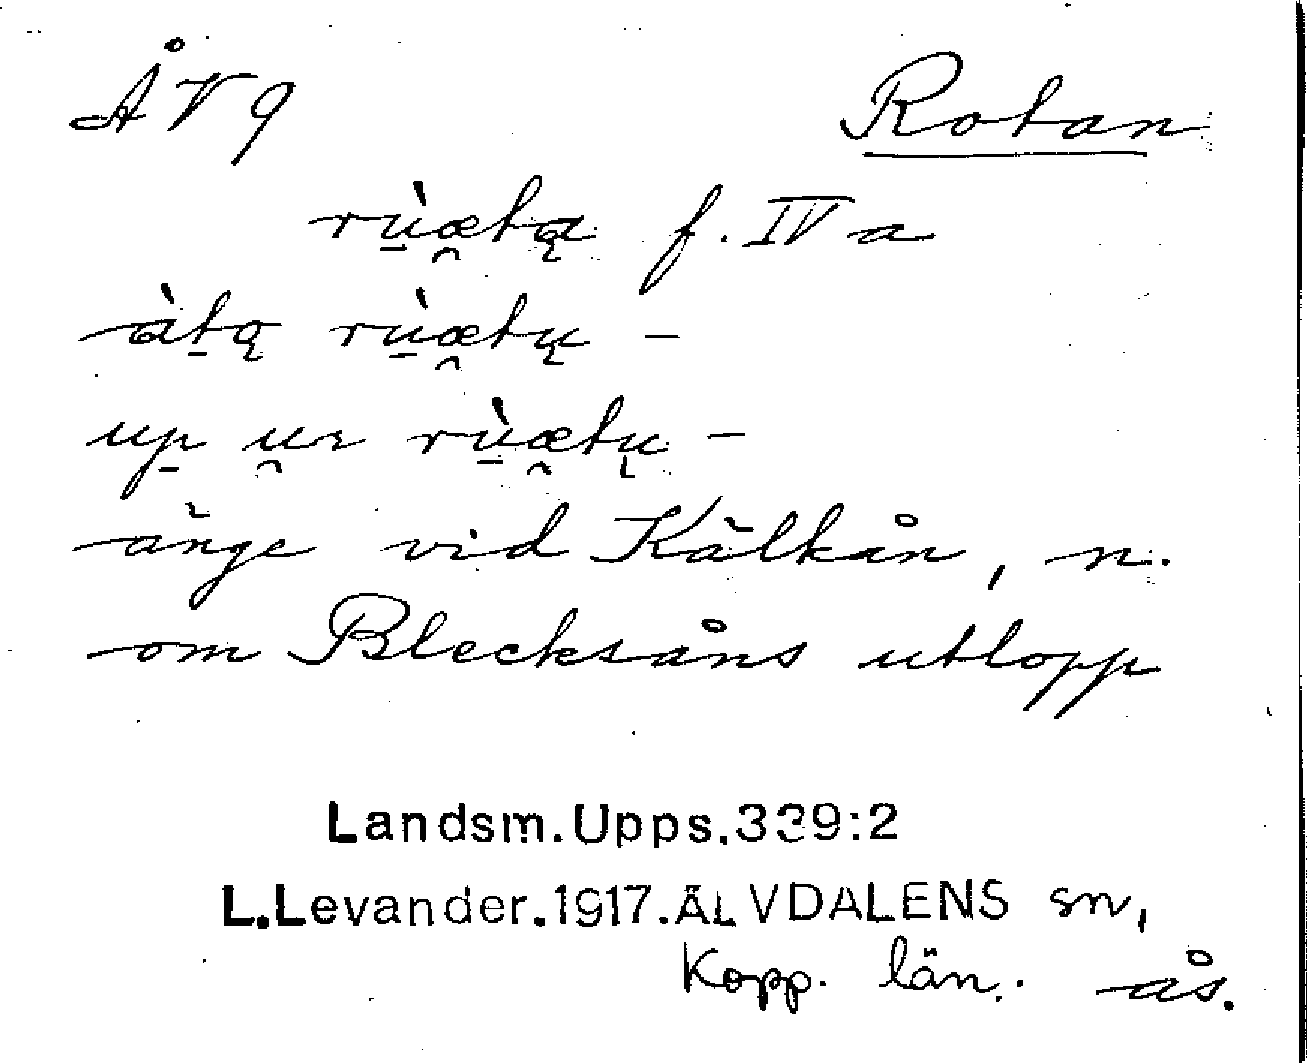 ÅV9 Rotan
rùæ̯tą f. IV a
àt̠ą rùæ̯tų –
up̠ u̯r rùæ̯tų –
änge vid Kälkån, n.
om Blecksåns utlopp
Landsm.Upps.339:2
L.Levander.1917.ÄLVDALENS sn,
Kopp. län. ås.